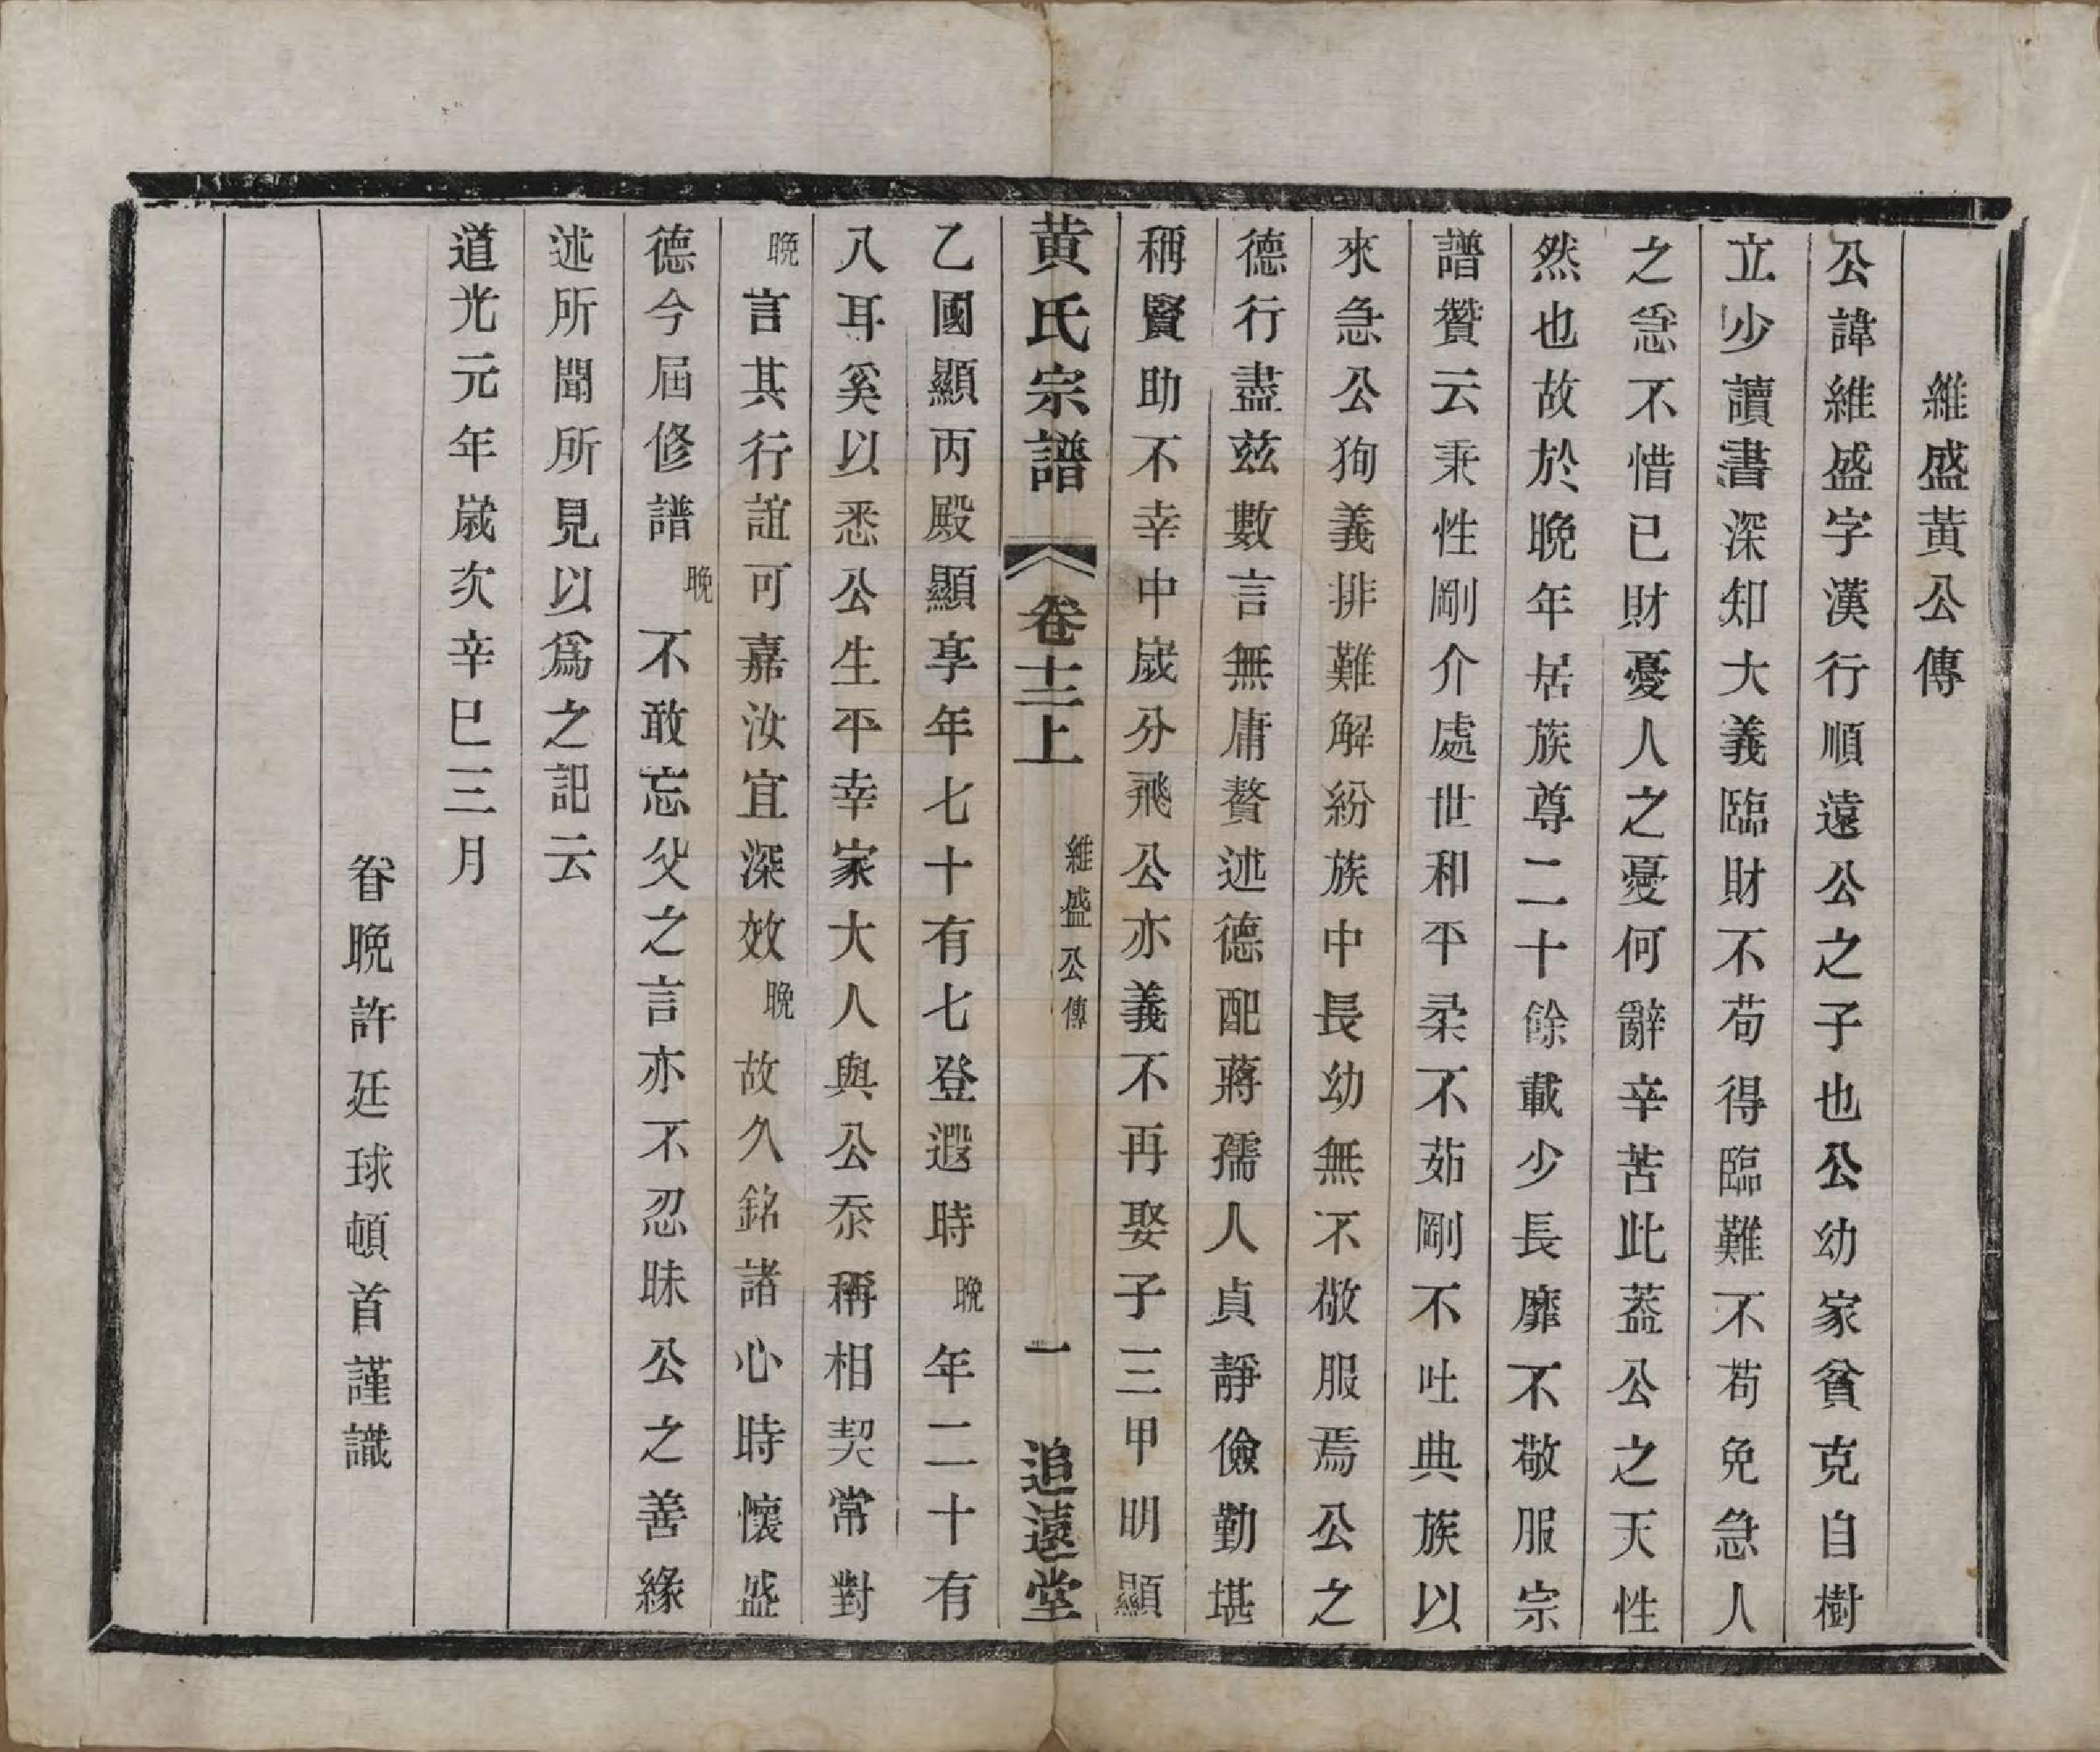 維盛黃公傳
公諱維盛字漢行順遠公之子也公幼家貧克自樹
立少讀書深知大義臨財不苟得臨難不苟免急人
之急不惜已財憂人之憂何辭辛苦此葢公之天性
然也故於晚年居族尊二十餘載少長靡不敬服宗
譜贊云秉性剛介處世和平柔不茹剛不吐典族以
來急公狥義排難解紛族中長幼無不敬服焉公之
德行盡兹數言無庸贅述德配蔣孺人貞靜儉勤堪
稱賢助不幸中嵗分飛公亦義不再娶子三甲明顯
黃氏宗譜 卷十二上 維盛公傳 一 追遠堂
乙國顯丙殿顯享年七十有七登遐時晚年二十有
八耳奚以悉公生平幸家大人與公忝稱相契常對
晚言其行誼可嘉汝宜深效晚故久銘諸心時懷盛
德今屆修譜晚不敢忘父之言亦不忍昧公之善緣
述所聞所見以爲之記云
道光元年嵗次辛巳三月
眷晚許廷球頓首謹識